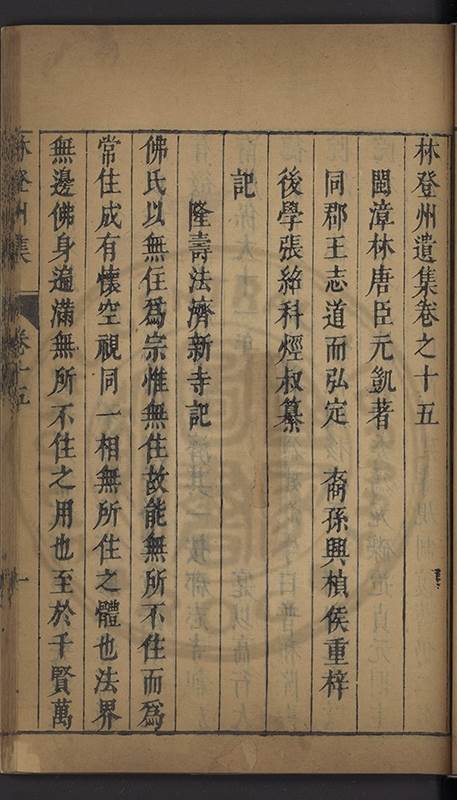 林登州遺集卷之十五
閩漳林唐臣元凱著
同郡王志道而弘定　裔孫興楨侯重梓
後學張紹科烴叔纂
記
隆壽法濟新寺記
佛氏以無住為宗惟無住故能無所不住而為
常住成有懷空視同一相無所住之體也法界
無邊佛身遍滿無所不住之用也至於千賢萬
林登州集　卷十五　一